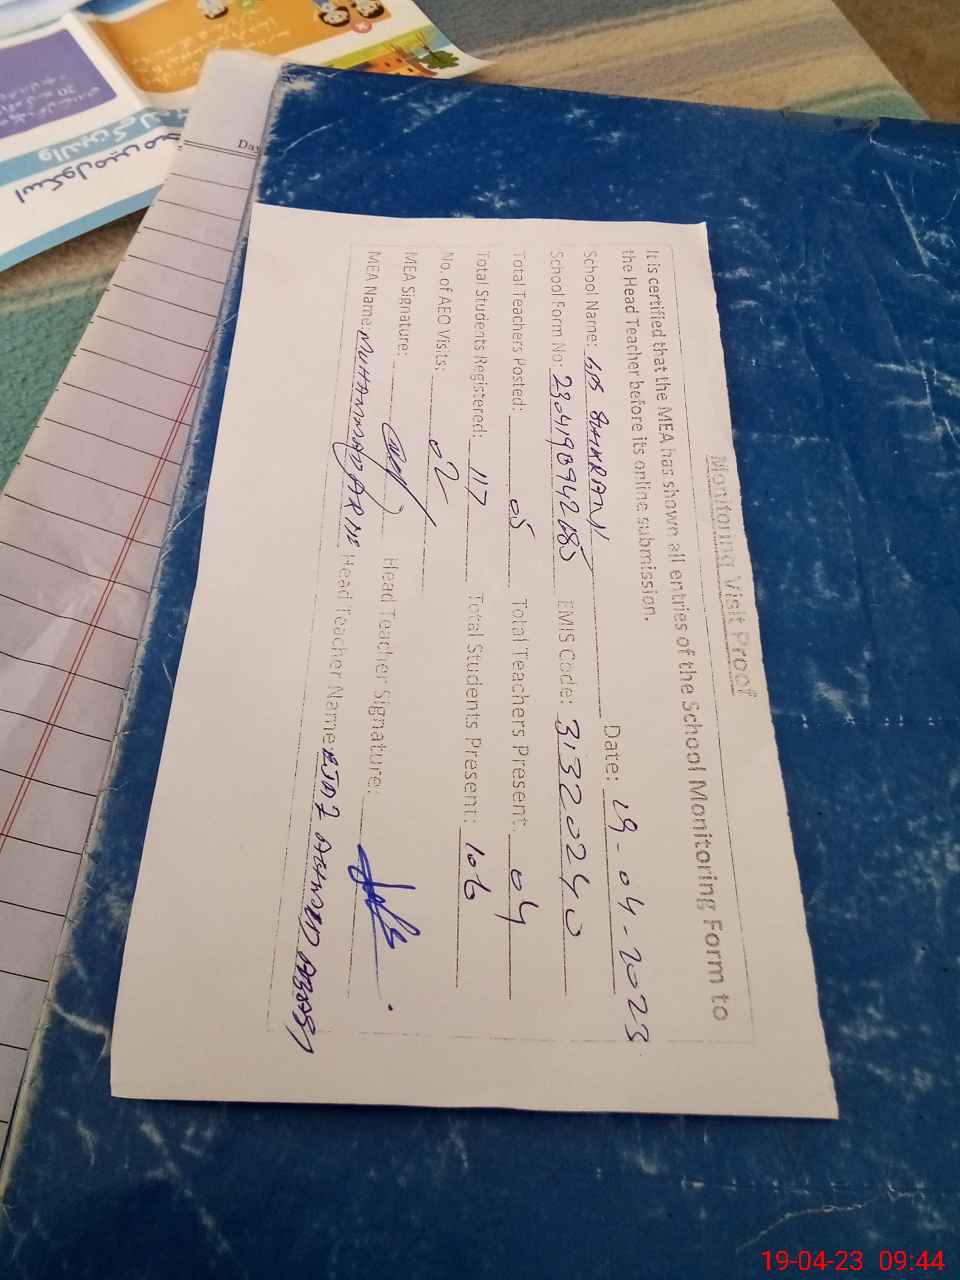 Monitoring Visit Proof
It is certified that the MEA has shown all entries of the School Monitoring Form to
the Head Teacher before its online submission.
School Name: Date: 19-04-2023
School Form No: 2304190942685 EMIS Code: 31320240
Total Teachers Posted: 05 Total Teachers Present: 04
Total Students Registered: 117 Total Students Present: 106
No. of AEO Visits: 02
MEA Signature: Head Teacher Signature:
MEA Name: MUHAMMAD Head Teacher Name: EJAZ AHMED ABASI
Day
اسکول میں
والدین کو
19-04-23 09:44